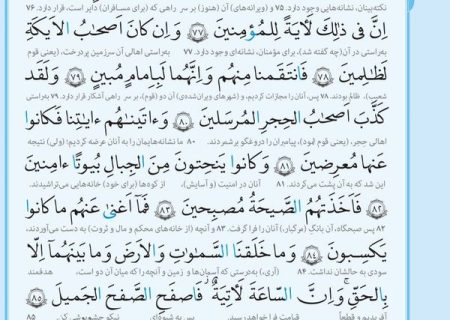 نکته‌بینان، نشانه‌هایی وجود دارد. ۷۵ و (ویرانه‌های) آن (هنوز) بر سر راهی که (برای مسافران) دایر است، قرار دارد. ۷۶
اِنَّ فی ذٰلِکَ لَآیَةً لِلمُؤمِنینَ ﴿۷۷﴾ وَ اِن کانَ اَصحٰبُ الاَیکَةِ
به‌راستی در آن (چه گفته شد)، برای مؤمنان، نشانه‌ای وجود دارد. ۷۷ به‌راستی اهالی آن سرزمین پردرخت، (یعنی قوم
لَظٰلِمینَ ﴿۷۸﴾ فَانتَقَمنا مِنهُم وَ اِنَّهُما لَبِاِمامٍ مُبینٍ ﴿۷۹﴾ وَ لَقَد
شعیب)، ظالم بودند. ۷۸ پس، آنان را مجازات کردیم، و (شهرهای ویران‌شده‌ی) آن دو (قوم)، بر سر راهی آشکار قرار دارد. ۷۹ به‌راستی
کَذَّبَ اَصحٰبُ الحِجرِ المُرسَلینَ ﴿۸۰﴾ وَ ءاتَینٰهُم ءایٰتِنا فَکانوا
اهالی حِجر، (یعنی قوم ثمود)، پیامبران را دروغگو برشمردند. ۸۰ ما نشانه‌هایمان را به آنان عرضه کردیم؛ (ولی) نتیجه
عَنها مُعرِضینَ ﴿۸۱﴾ وَ کانوا یَنحِتونَ مِنَ الجِبالِ بُیوتًا ءامِنینَ
این شد که به آن پشت می‌کردند. ۸۱ آنان در امنیت (و آسایش)، از کوه‌ها (برای خود) خانه‌هایی می‌تراشیدند.
﴿۸۲﴾ فَاَخَذَتهُمُ الصَّیحَةُ مُصبِحینَ ﴿۸۳﴾ فَما اَغنیٰ عَنهُم ما کانوا
۸۲ پس صبحگاه، آن بانگِ (مرگبار)، آنان را فرا گرفت. ۸۳ و آنچه (از خانه‌های محکم و مال و ثروت) به دست می‌آوردند،
یَکسِبونَ ﴿۸۴﴾ وَ ما خَلَقنَا السَّمٰوٰتِ وَ الاَرضَ وَ ما بَینَهُما اِلّا
سودی به حالشان نداشت. ۸۴ (آری،) به‌درستی که آسمان‌ها و زمین و آنچه را که میان آن دو است، هدفمند
بِالحَقِّ وَ اِنَّ السّاعَةَ لَآتِیَةٌ فَاصفَحِ الصَّفحَ الجَمیلَ ﴿۸۵﴾
آفریدیم و قطعاً قیامت فرا خواهد رسید. پس به شیوه‌ای نیکو چشم‌پوشی کن. ۸۵